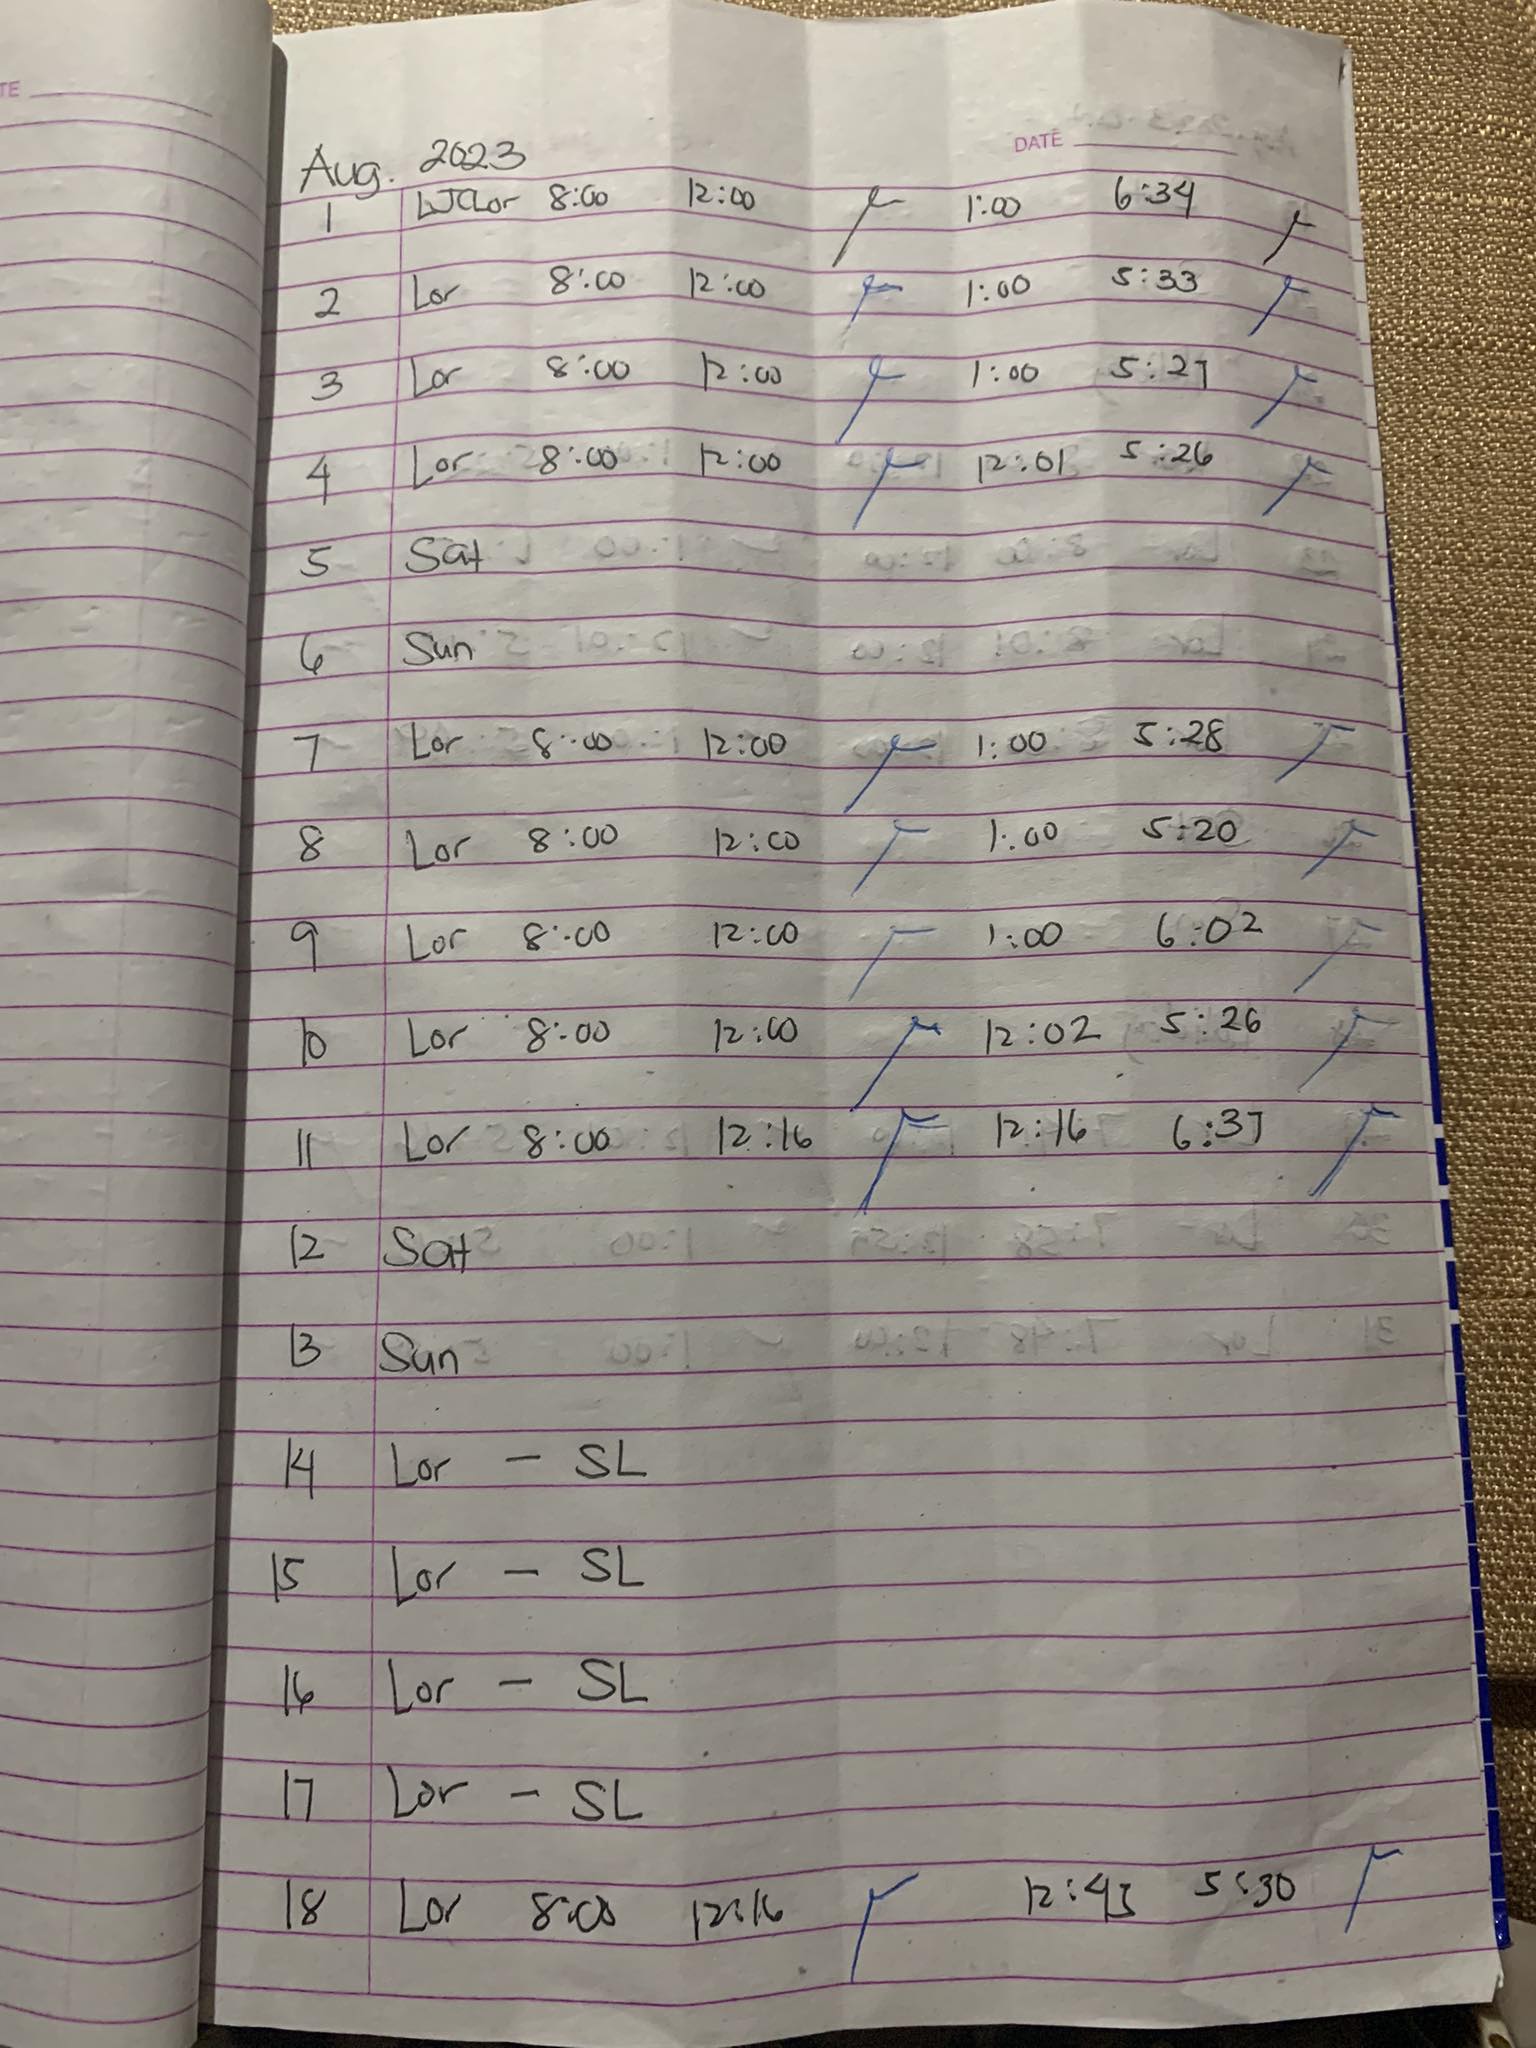 TE
DATE
Aug. 2023
1 LJCLor 8:00 12:00 1:00 6:34
2 Lor 8:00 12:00 1:00 5:33
3 Lor 8:00 12:00 1:00 5:27
4 Lor 8:00 12:00 12:01 5:26
5 Sat
6 Sun
7 Lor 8:00 12:00 1:00 5:28
8 Lor 8:00 12:00 1:00 5:20
9 Lor 8:00 12:00 1:00 6:02
10 Lor 8:00 12:00 12:02 5:26
11 Lor 8:00 12:16 12:16 6:37
12 Sat
13 Sun
14 Lor - SL
15 Lor - SL
16 Lor - SL
17 Lor - SL
18 Lor 8:00 12:16 12:43 5:30